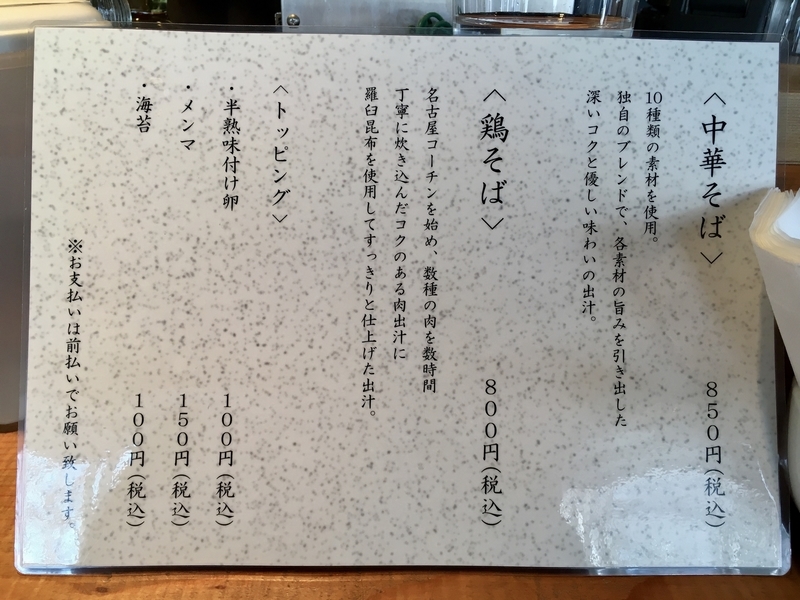 〈中華そば〉 850円(税込)
10種類の素材を使用。
独自のブレンドで、各素材の旨みを引き出した
深いコクと優しい味わいの出汁。
〈鶏そば〉 800円(税込)
名古屋コーチンを始め、数種の肉を数時間
丁寧に炊き込んだコクのある肉出汁に
羅臼昆布を使用してすっきりと仕上げた出汁。
〈トッピング〉
・半熟味付け卵 100円(税込)
・メンマ 150円(税込)
・海苔 100円(税込)
※お支払いは前払いでお願い致します。